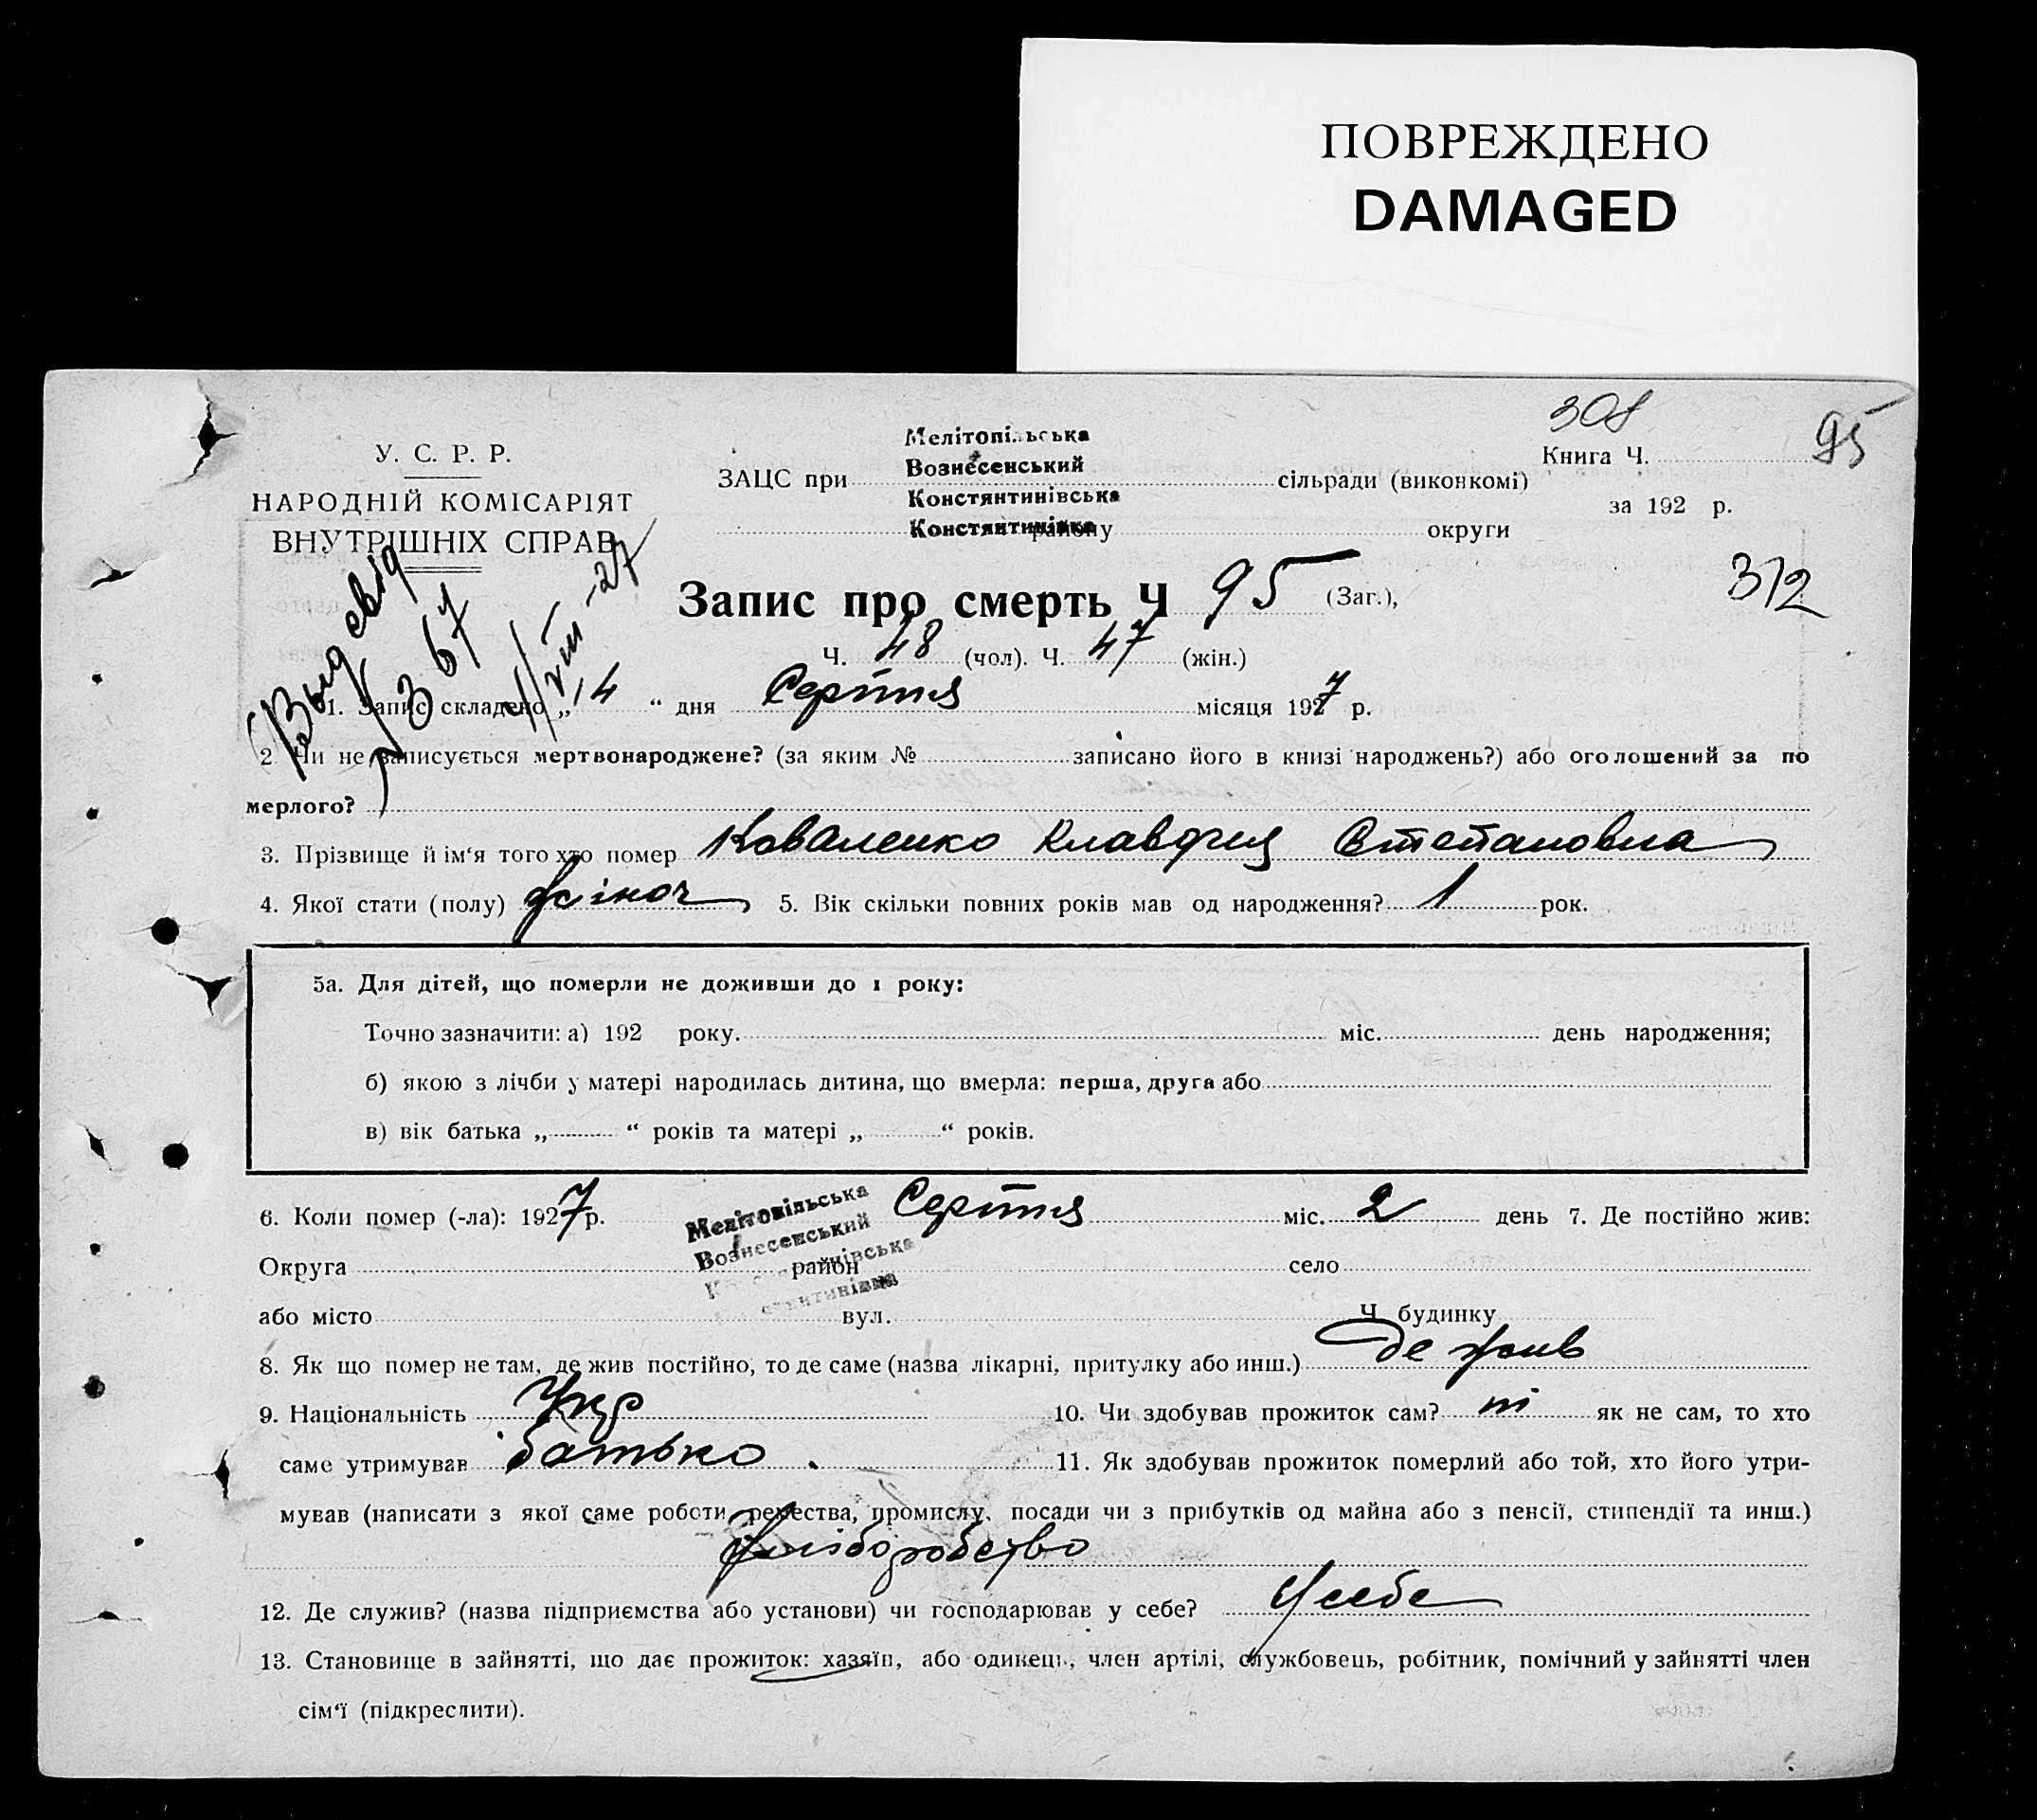 ПОВРЕЖДЕНО
DAMAGED
308
95
У. С. Р. Р.
НАРОДНІЙ КОМІСАРІЯТ
ВНУТРІШНІХ СПРАВ
Мелітопільська
Вознесенський
Констянтинівська
Констянтинівка
ЗАЦС при сільради (виконкомі)
району округи
Книга Ч.
за 192 р.
312
Запис про смерть Ч 95 (Заг.),
Ч. 48 (чол). Ч. 47 (жін.)
N 367
VIII-27
1. Запис складено „ 4 “ дня Серпня місяця 1927 р.
2 Чи не записується мертвонароджене? (за яким № записано його в книзі народжень?) або оголошений за по
мерлого?
3. Прізвище й ім‘я того хто помер Коваленко Клавдия Степановна
4. Якої стати (полу) жіноч 5. Вік скільки повних років мав од народження? 1 рок.
5а. Для дітей, що померли не доживши до 1 року:
Точно зазначити: а) 192 року. міс. день народження;
б) якою з лічби у матері народилась дитина, що вмерла: перша, друга або
в) вік батька „ “ років та матері „ “ років.
6. Коли помер (-ла): 1927 р. Серпня міс. 2 день 7. Де постійно жив:
Мелітопільська
Вознесенський
Округа район село
або місто вул. Ч будинку
8. Як що помер не там, де жив постійно, то де саме (назва лікарні, притулку або инш.) де жив
9. Національність Укр 10. Чи здобував прожиток сам? ні як не сам, то хто
саме утримував батько. 11. Як здобував прожиток померлий або той, хто його утри-
мував (написати з якої саме роботи, ремества, промислу, посади чи з прибутків од майна або з пенсії, стипендії та инш.)
хліборобство
12. Де служив? (назва підприємства або установи) чи господарював у себе? У себе
13. Становище в зайнятті, що дає прожиток: хазяїн, або одинець, член артілі, службовець, робітник, помічний у зайнятті член
сім‘ї (підкреслити).